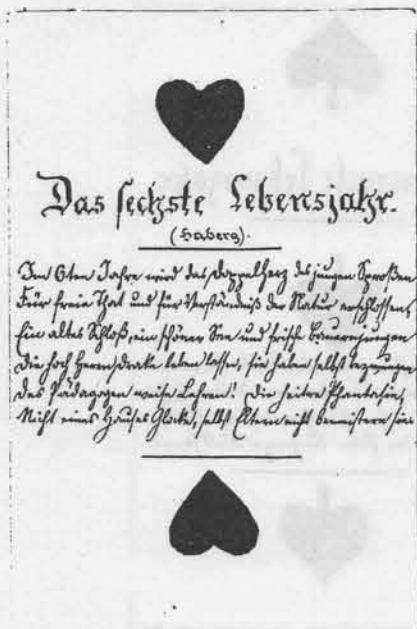 Das sechste Lebensjahr.
(Haberg).
Im 6ten Jahre wird das Doppelherz des jungen Sproßen
Für freie That und für Verständniß der Natur erschlossen,
Ein altes Schloß, ein schöner See und frische Bauernjungen
Die hoch Herrn Drake leben lassen, sie haben selbst bezwungen
Des Pädagogen weise Lehren! Die heitre Phantasie,
Nicht eines Hauses Glocke, selbst Eltern nicht bemeistern sie